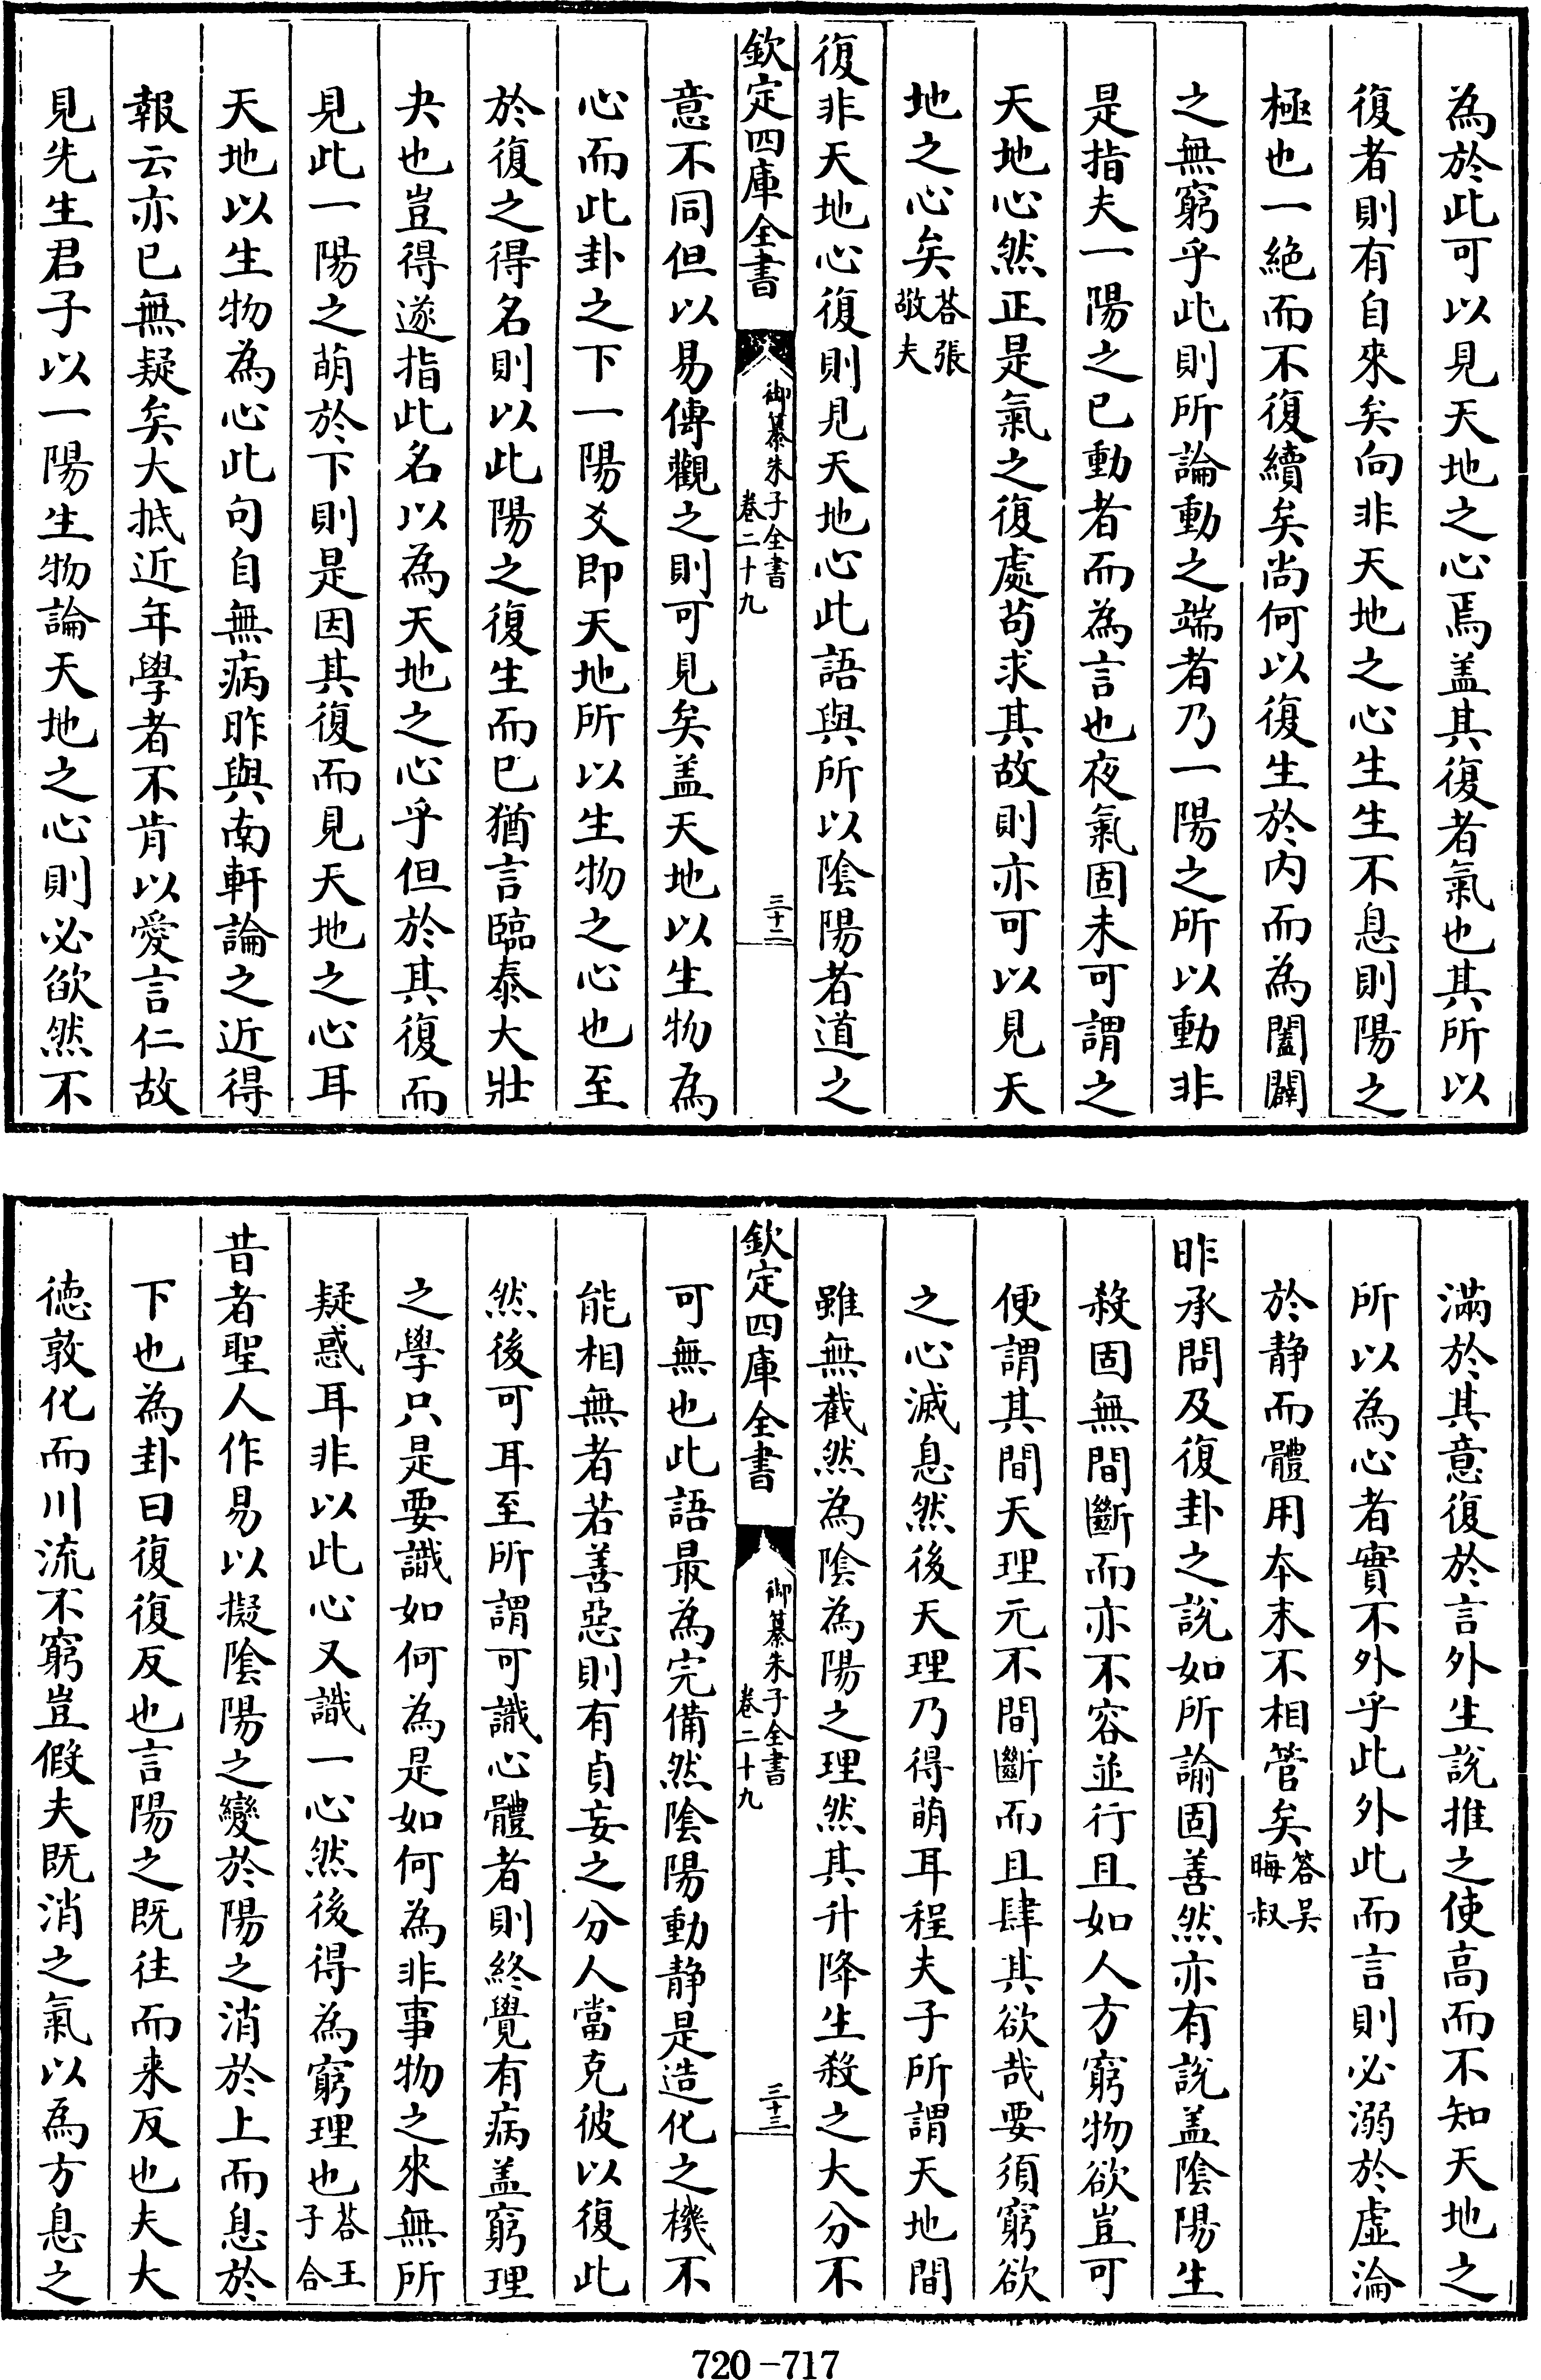 為於此可以見天地之心焉盖其復者氣也其所以
復者則有自來矣向非天地之心生生不息則陽之
極也一絶而不復續矣尚何以復生於内而為闔闢
之無窮乎此則所論動之端者乃一陽之所以動非
是指夫一陽之已動者而為言也夜氣固未可謂之
天地心然正是氣之復處苟求其故則亦可以見天
地之心矣荅張敬夫
復非天地心復則見天地心此語與所以隂陽者道之
欽定四庫全書 御纂朱子全書 卷二十九 三十二
意不同但以易傳觀之則可見矣盖天地以生物為
心而此卦之下一陽爻即天地所以生物之心也至
於復之得名則以此陽之復生而已猶言臨泰大壯
夬也豈得遂指此名以為天地之心乎但於其復而
見此一陽之萌於下則是因其復而見天地之心耳
天地以生物為心此句自無病昨與南軒論之近得
報云亦已無疑矣大抵近年學者不肯以愛言仁故
見先生君子以一陽生物論天地之心則必欿然不
滿於其意復於言外生說推之使高而不知天地之
所以為心者實不外乎此外此而言則必溺於虚淪
於静而體用本末不相管矣答吴晦叔
昨承問及復卦之說如所諭固善然亦有說盖隂陽生
殺固無間斷而亦不容並行且如人方窮物欲豈可
便謂其間天理元不間斷而且肆其欲哉要須窮欲
之心滅息然後天理乃得萌耳程夫子所謂天地間
雖無截然為隂為陽之理然其升降生殺之大分不
欽定四庫全書 御纂朱子全書 卷二十九 三十三
可無也此語最為完備然隂陽動静是造化之機不
能相無者若善惡則有貞妄之分人當克彼以復此
然後可耳至所謂可識心體者則終覺有病盖窮理
之學只是要識如何為是如何為非事物之來無所
疑惑耳非以此心又識一心然後得為窮理也荅王子合
昔者聖人作易以擬隂陽之變於陽之消於上而息於
下也為卦曰復復反也言陽之既往而来反也夫大
徳敦化而川流不窮豈假夫既消之氣以為方息之
720-717